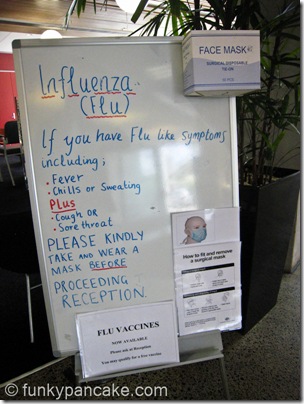 Influenza
(Flu)
If you have Flu like symptoms
including;
• Fever
• Chills or Sweating
Plus
• Cough OR
• Sore throat
PLEASE KINDLY
TAKE AND WEAR A
MASK BEFORE
PROCEEDING
RECEPTION.
FACE MASK
SURGICAL DISPOSABLE
TIE-ON
How to fit and remove
a surgical mask
FLU VACCINES
NOW AVAILABLE
Please ask at Reception
You may qualify for a free vaccine
© funkypancake.com